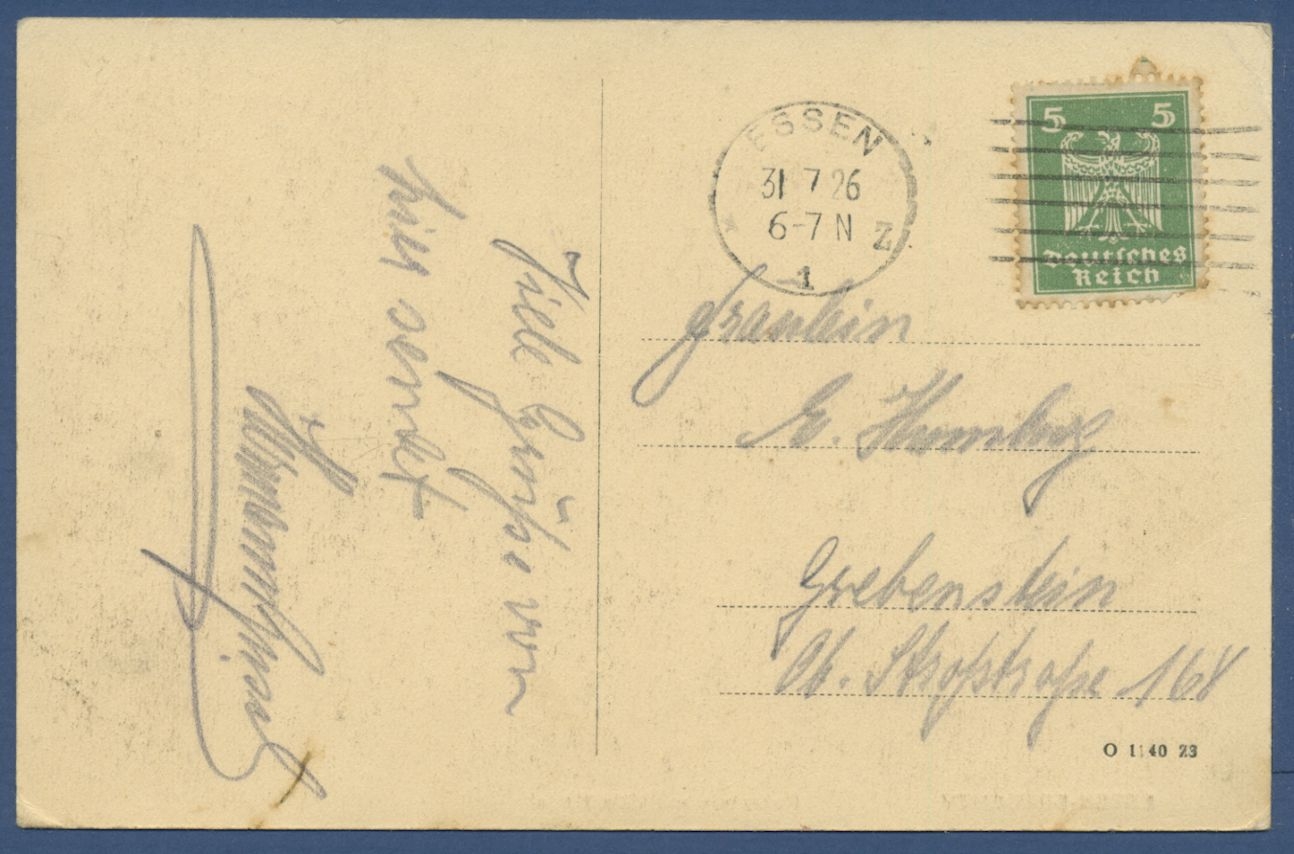 Viele Grüße von
hier sendet
ESSEN
31 7 26
6-7 N
Z
1
5 5
Deutsches
Reich
Fräulein
E. Homburg
Grebenstein
168
O 1140 23